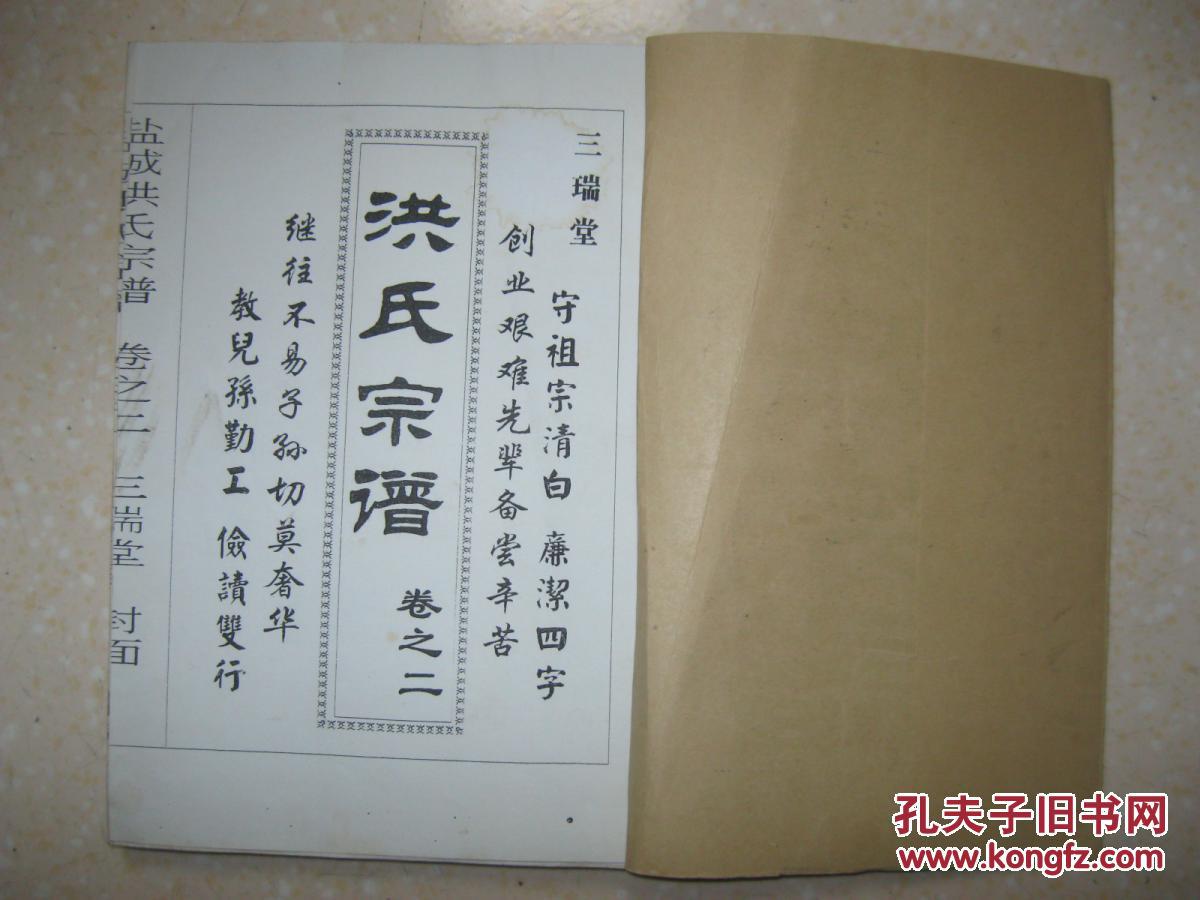 三瑞堂
守祖宗清白 廉潔四字
创业艰难先辈备尝辛苦
洪氏宗谱
卷之二
继往不易子孙切莫奢华
教兒孫勤工 儉讀雙行
盐城洪氏宗谱 卷之二 三瑞堂 封面
孔夫子旧书网
www.kongfz.com